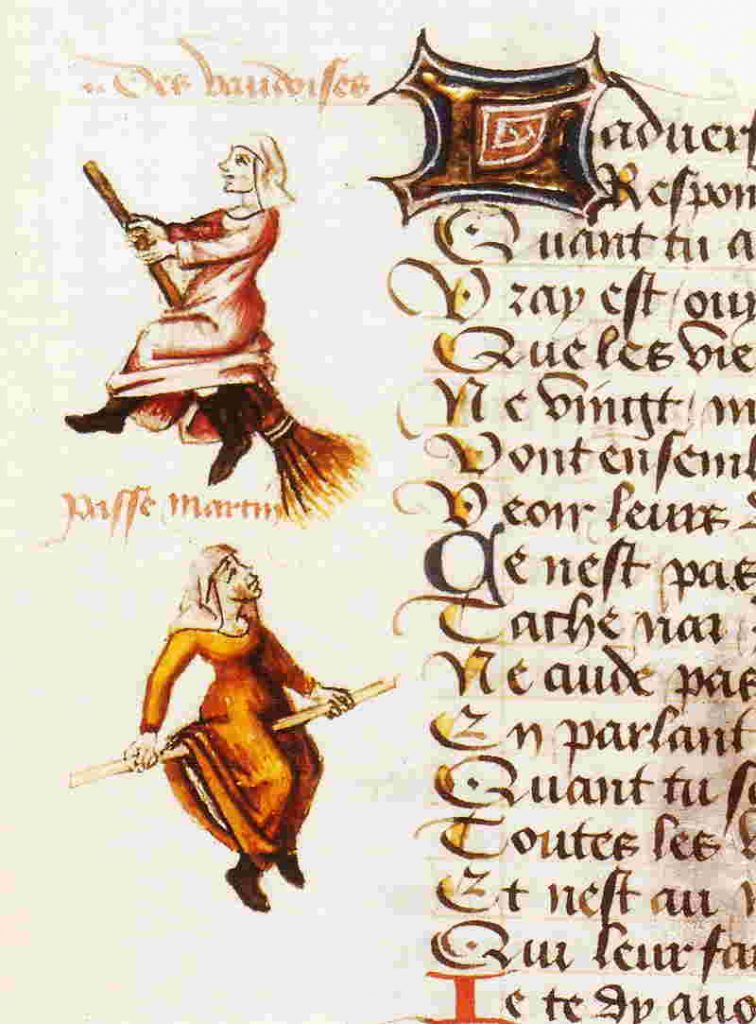 Des vaudoises
passe martin
Ladvers
Respon
Quant tu a
Vray est ouy
Que les vie
Ne vingt m
Vont ensembl
Veoir leurs
Ce nest pas
Tache par
Ne cuide pas
En parlant
Quant tu se
Toutes les v
Et nest au
Qui leur fa
Je te dy auo